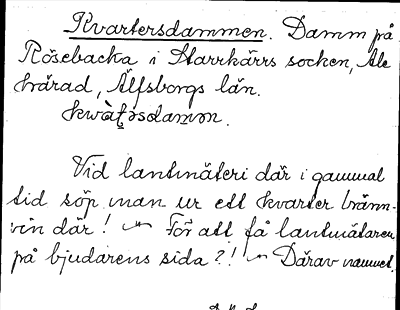 Kvartersdammen. Damm på
Rösebacka i Starrkärrs socken, Ale
härad, Älfsborgs län.
kwàʈəsdamən.
Vid lantmäteri där i gammal
tid söp man ur ett kvarter bränn-
vin där! ~ För att få lantmätaren
på bjudarens sida?! ~ Därav namnet.